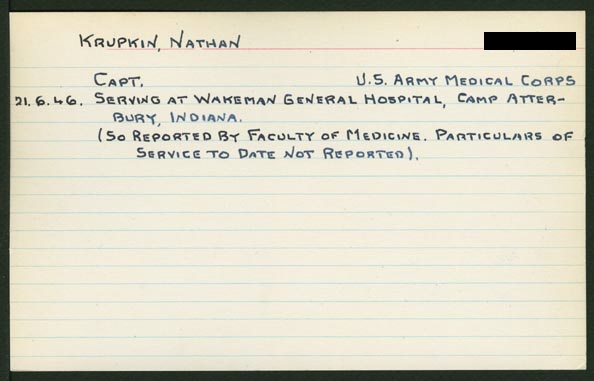 KRUPKIN, NATHAN
CAPT. U.S. ARMY MEDICAL CORPS
21.6.46. SERVING AT WAKEMAN GENERAL HOSPITAL, CAMP ATTER-
BURY, INDIANA.
(SO REPORTED BY FACULTY OF MEDICINE. PARTICULARS OF
SERVICE TO DATE NOT REPORTED).